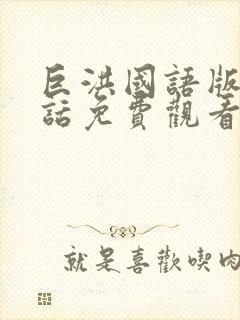 巨洪國語版
話免費觀看
就是喜歡喫肉